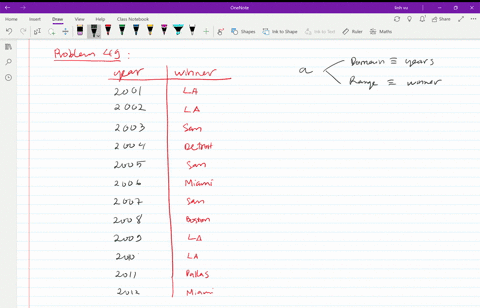 OneNote
linh vu
File Home Insert Draw View Help Class Notebook
Shapes Ink to Shape Ink to Text Math
Problem 49:
year winner
2001 LA
2002 LA
2003 San
2004 Detroit
2005 San
2006 Miami
2007 San
2008 Boston
2009 LA
2010 LA
2011 Dallas
2012 Miami
a
Domain ≡ years
Range ≡ winner